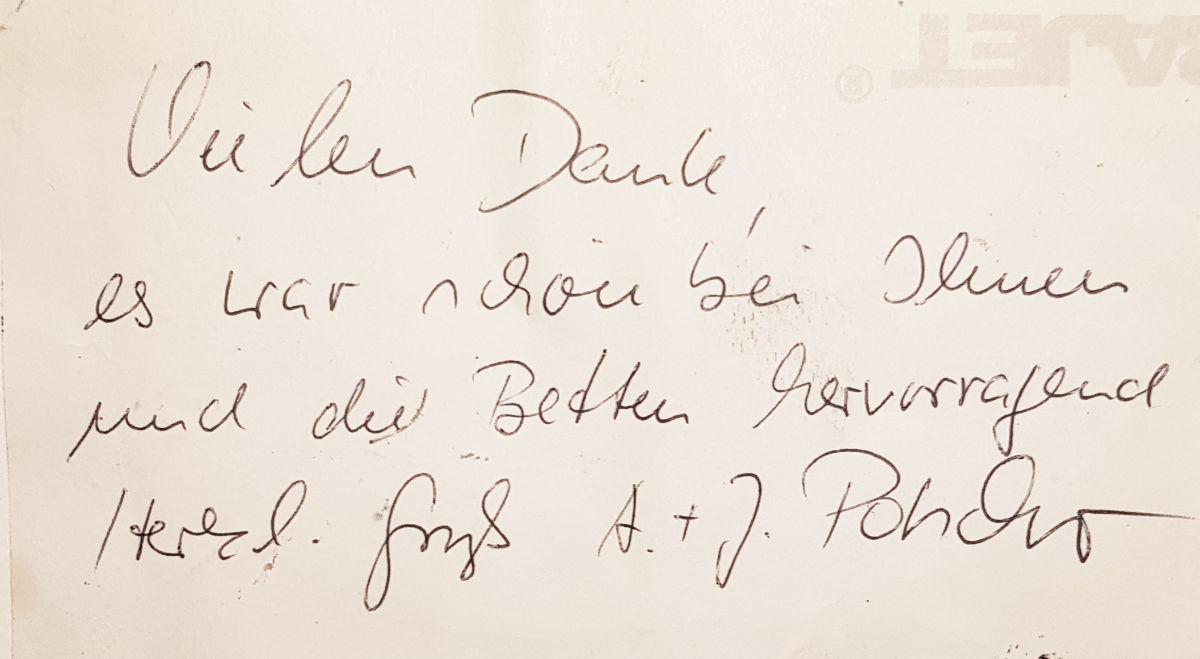 Vielen Dank,
es war schön bei Ihnen
und die Betten hervorragend
Herzl. Gruß A. + J.